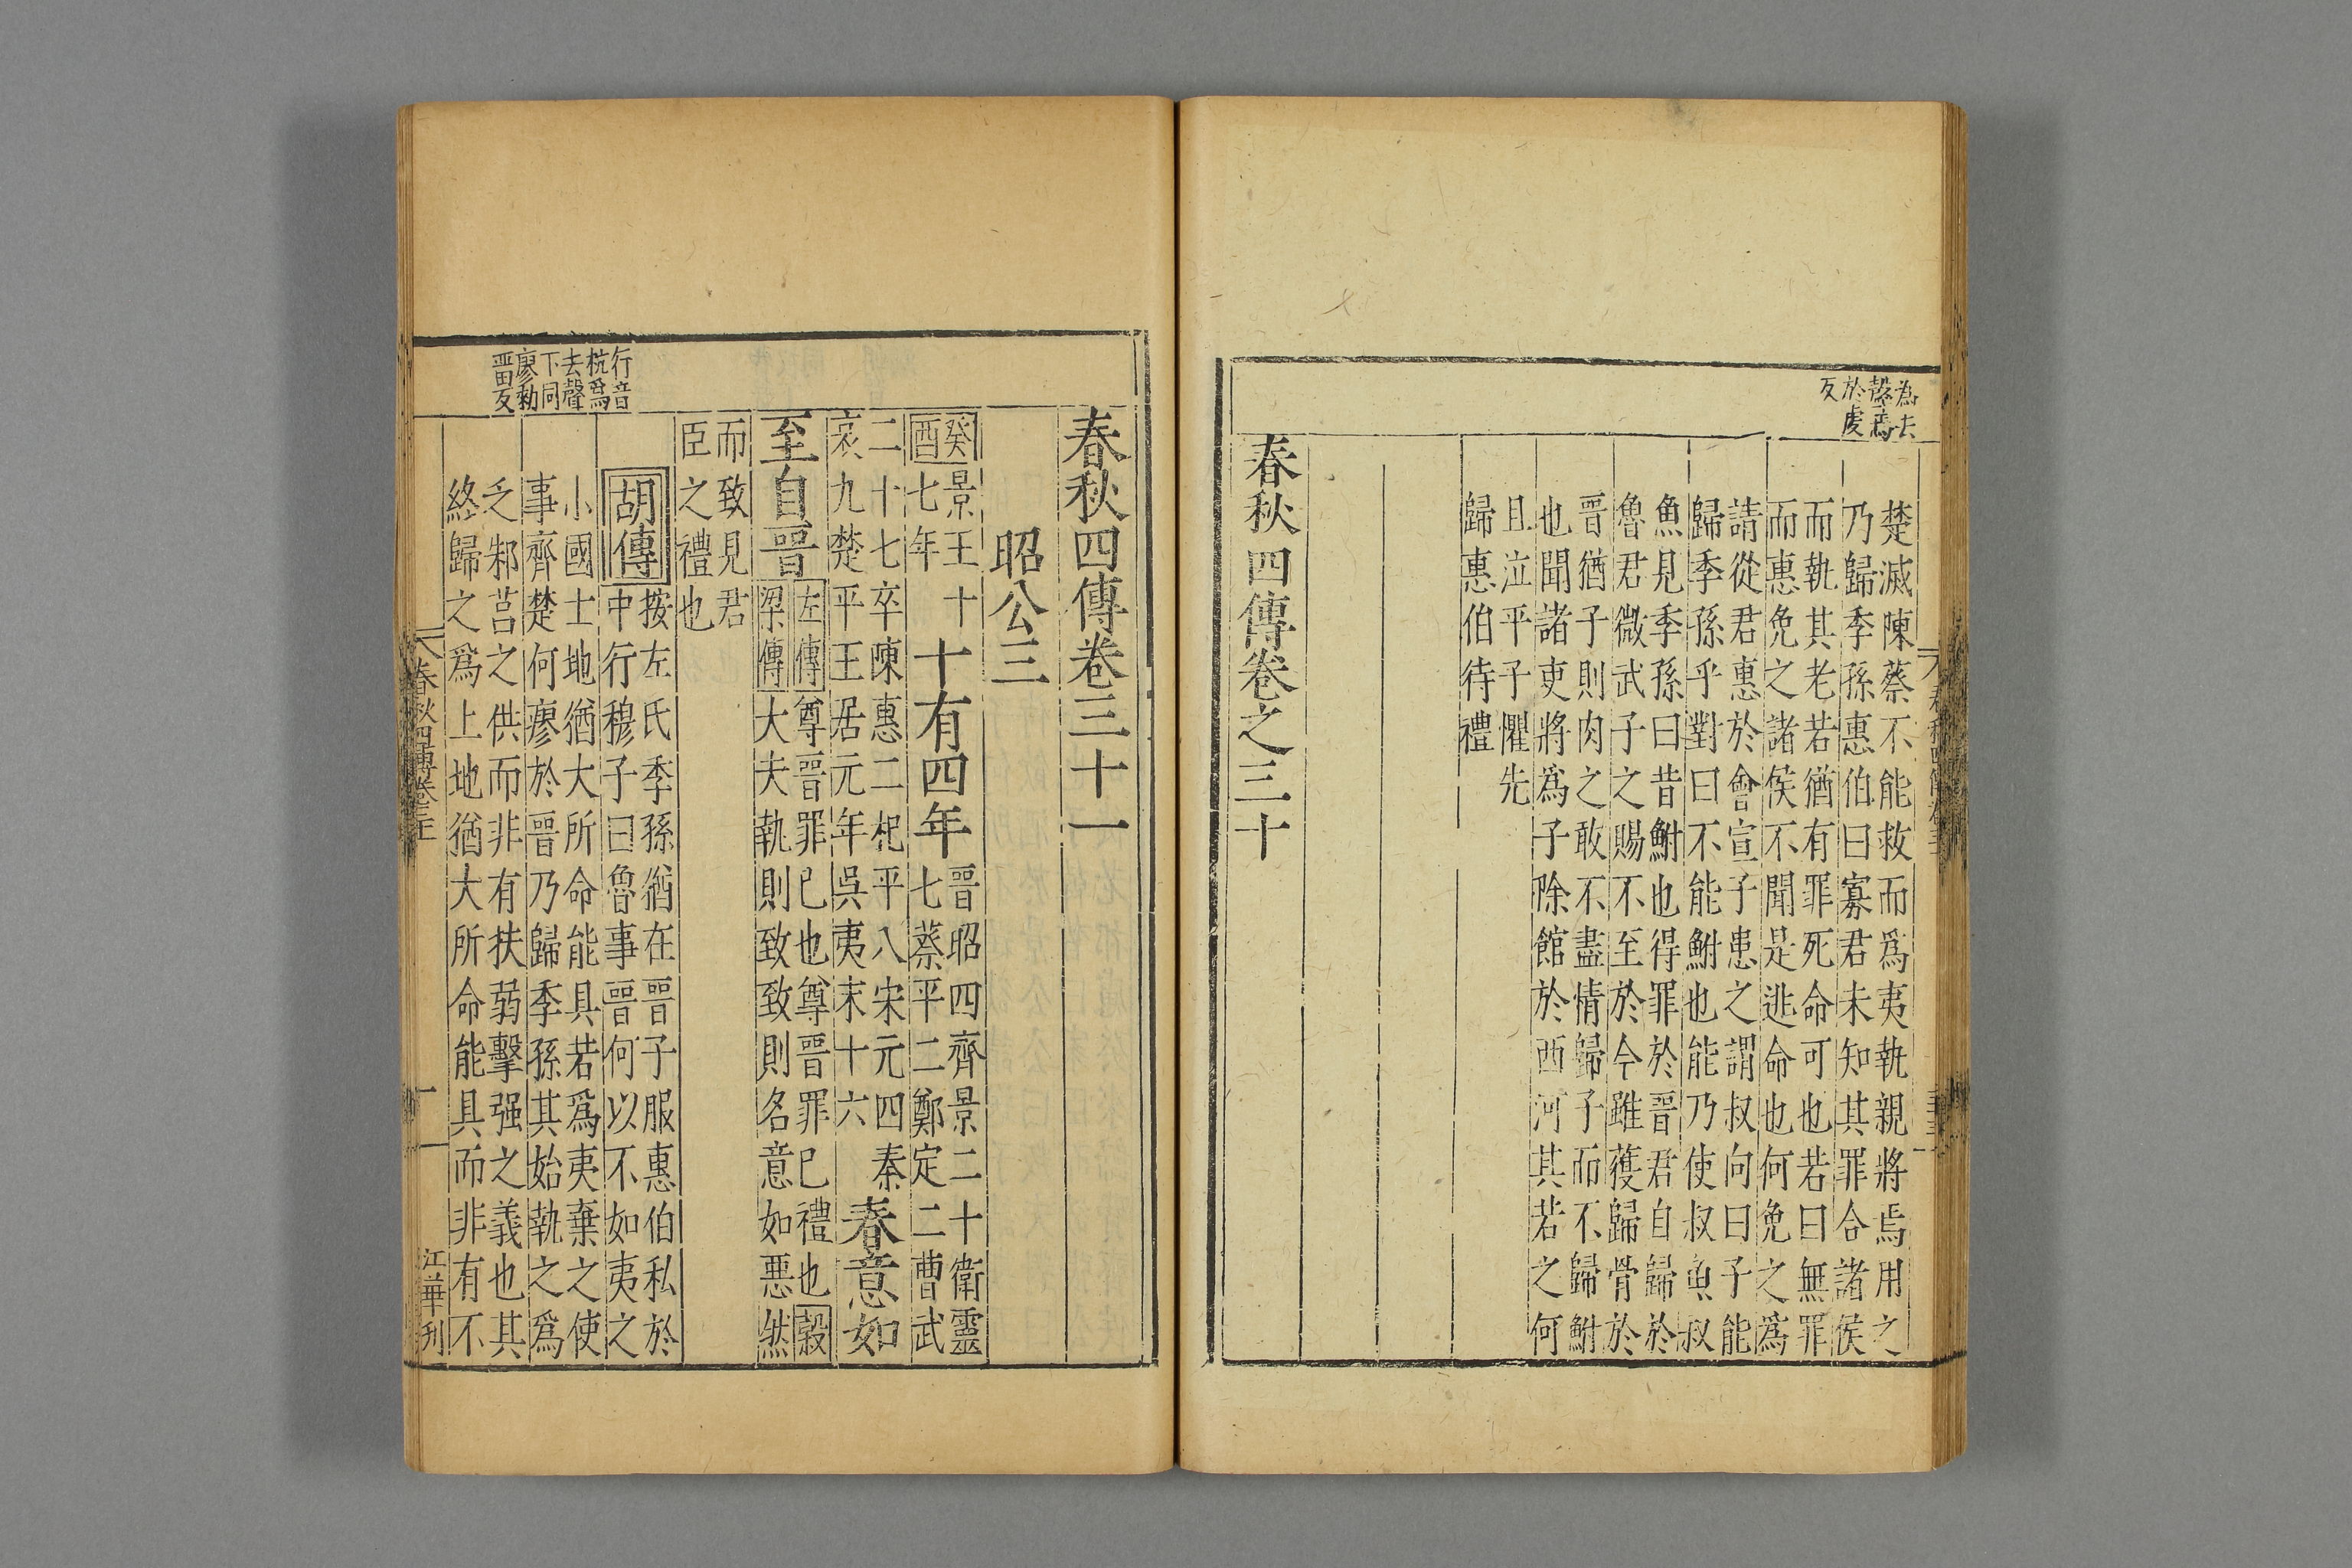 為去
聲焉
於虔
反
楚滅陳蔡不能救而爲夷執親將焉用之
乃歸季孫惠伯曰寡君未知其罪合諸侯
而執其老若猶有罪死命可也若曰無罪
而惠免之諸侯不聞是逃命也何免之爲
請從君惠於會宣子患之謂叔向曰子能
歸季孫乎對曰不能鮒也能乃使叔魚叔
魚見季孫曰昔鮒也得罪於晉君自歸於
魯君微武子之賜不至於今雖獲歸骨於
晉猶子則肉之敢不盡情歸子而不歸鮒
也聞諸吏將爲子除館於西河其若之何
且泣平子懼先
歸惠伯待禮
春秋四傳卷之三十
春秋四傳卷三十一
昭公三
癸酉
景王十
七年
十有四年
晉昭四齊景二十衛靈
七蔡平二鄭定二曹武
二十七卒陳惠二杞平八宋元四秦
哀九楚平王居元年吳夷末十六
春意如
至自晉
左傳
尊晉罪已也尊晉罪已禮也
穀
梁傳
大夫執則致致則名意如惡然
而致見君
臣之禮也
胡傳
按左氏季孫猶在晉子服惠伯私於
中行穆子曰魯事晉何以不如夷之
小國士地猶大所命能具若爲夷棄之使
事齊楚何瘳於晉乃歸季孫其始執之爲
乏邾莒之供而非有扶弱擊强之義也其
終歸之爲上地猶大所命能具而非有不
行音
杭爲
去聲
下同
廖勑
畱反
春秋四傳卷三十一
一
江華刋